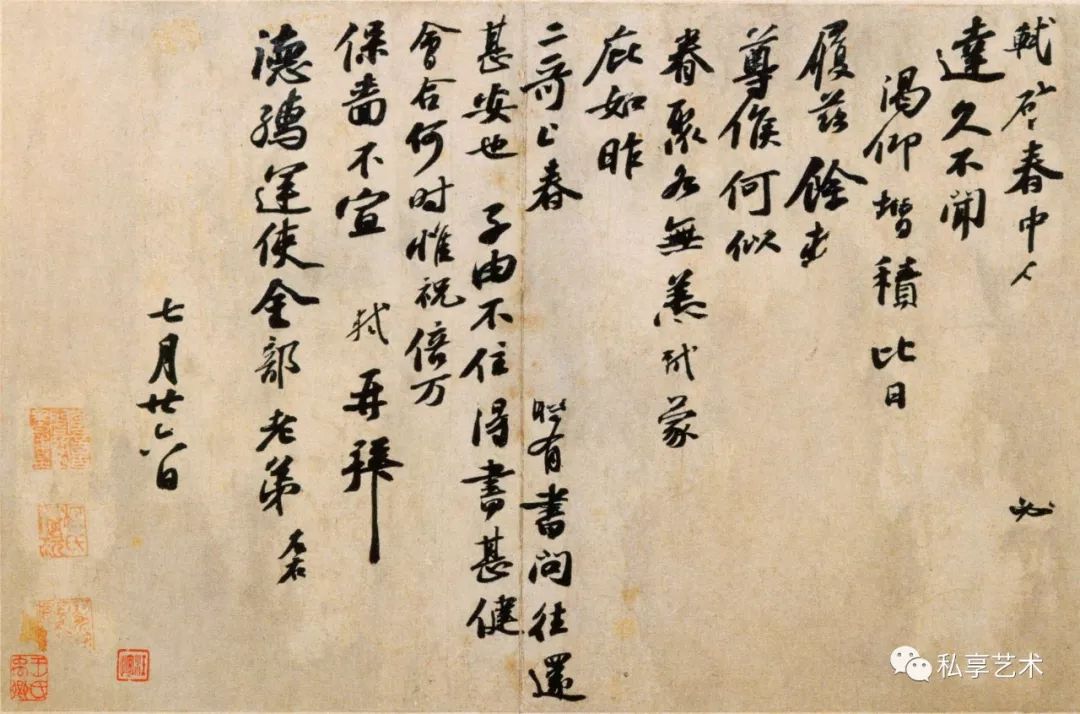 軾啓春中人必
達久不聞
渴仰增積比日
履茲餘熱
尊候何似
眷聚各無恙軾蒙
庇如昨
二哥上春皆有書問往還
甚安也子由不住得書甚健
會合何時惟祝倍万
保嗇不宣軾再拜
德孺運使金部老弟左右
七月廿六日
私享艺术